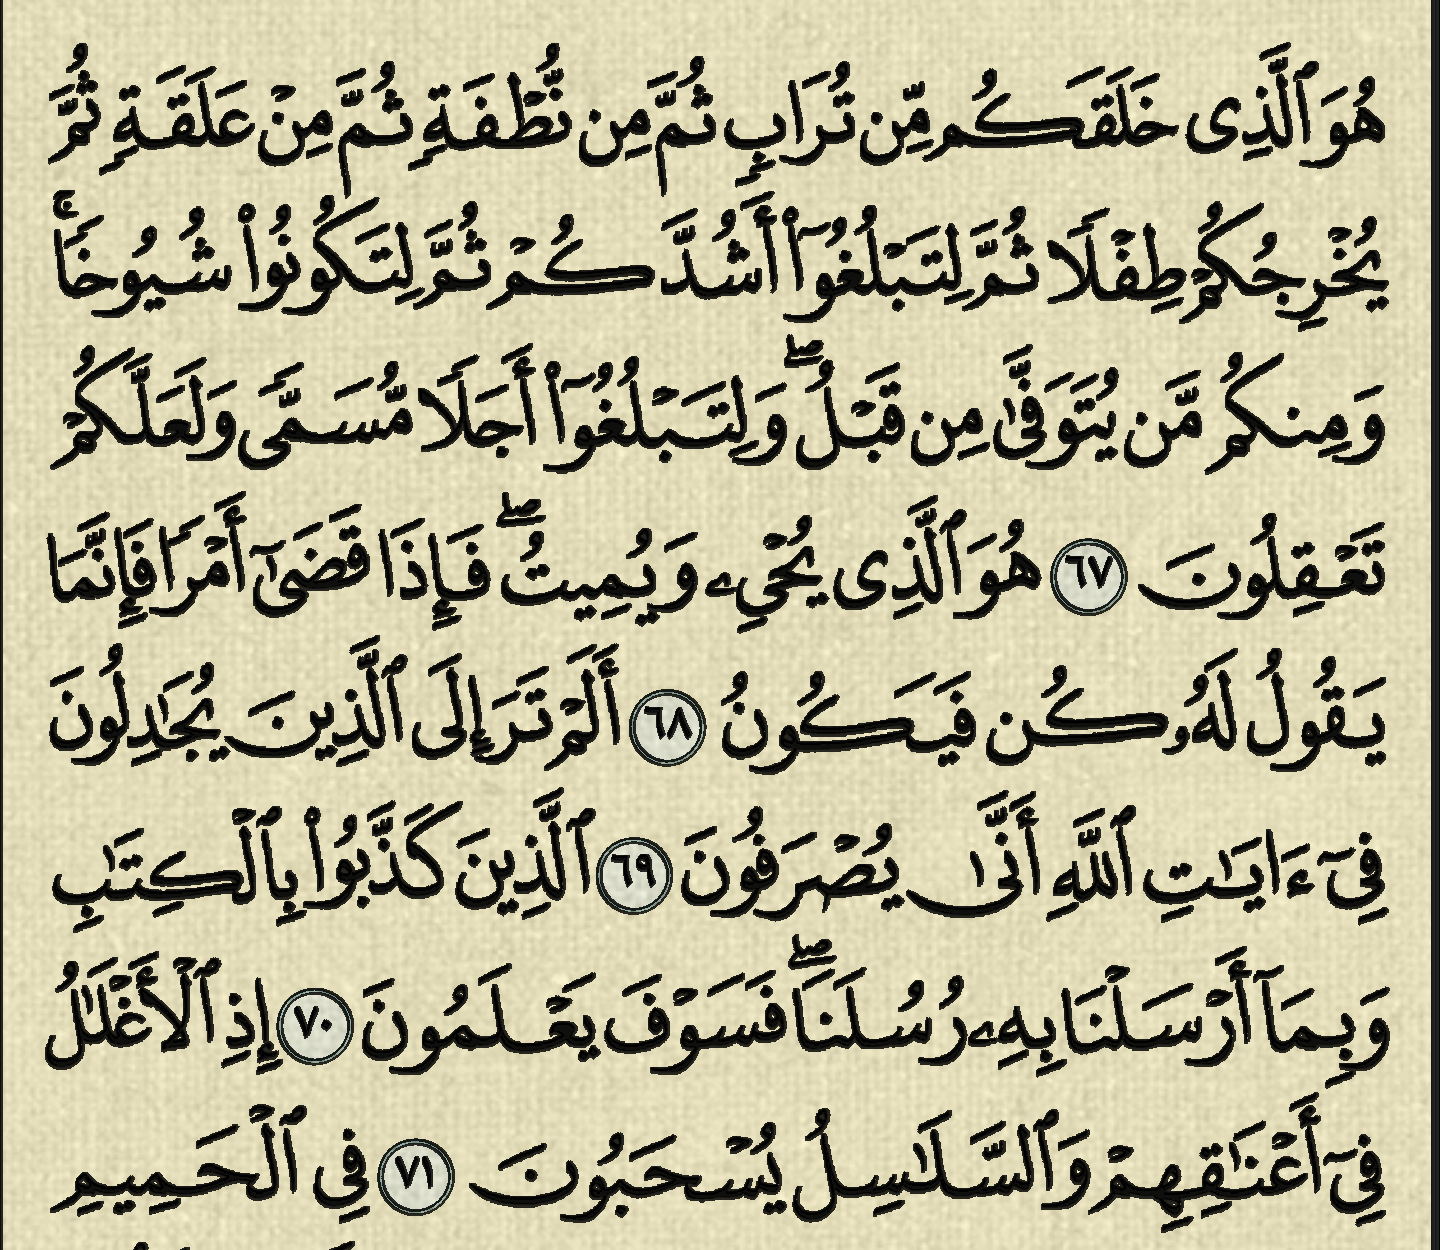 هُوَ ٱلَّذِى خَلَقَكُم مِّن تُرَابٍ ثُمَّ مِن نُّطْفَةٍ ثُمَّ مِنْ عَلَقَةٍ ثُمَّ
يُخْرِجُكُمْ طِفْلًا ثُمَّ لِتَبْلُغُوٓا۟ أَشُدَّكُمْ ثُمَّ لِتَكُونُوا۟ شُيُوخًا ۚ
وَمِنكُم مَّن يُتَوَفَّىٰ مِن قَبْلُ ۖ وَلِتَبْلُغُوٓا۟ أَجَلًا مُّسَمًّى وَلَعَلَّكُمْ
تَعْقِلُونَ ٦٧ هُوَ ٱلَّذِى يُحْىِۦ وَيُمِيتُ ۖ فَإِذَا قَضَىٰٓ أَمْرًا فَإِنَّمَا
يَقُولُ لَهُۥ كُن فَيَكُونُ ٦٨ أَلَمْ تَرَ إِلَى ٱلَّذِينَ يُجَٰدِلُونَ
فِىٓ ءَايَٰتِ ٱللَّهِ أَنَّىٰ يُصْرَفُونَ ٦٩ ٱلَّذِينَ كَذَّبُوا۟ بِٱلْكِتَٰبِ
وَبِمَآ أَرْسَلْنَا بِهِۦ رُسُلَنَا ۖ فَسَوْفَ يَعْلَمُونَ ٧٠ إِذِ ٱلْأَغْلَٰلُ
فِىٓ أَعْنَٰقِهِمْ وَٱلسَّلَٰسِلُ يُسْحَبُونَ ٧١ فِى ٱلْحَمِيمِ